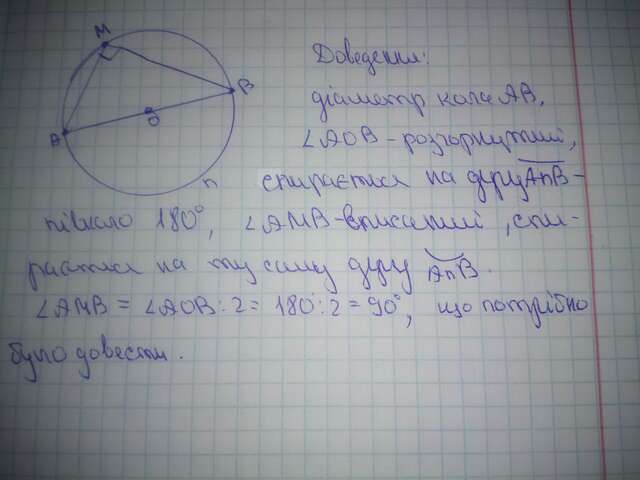 M
B
O
A
n
Доведення:
діаметр кола AB,
∠AOB - розгорнутий,
спирається на дугу AnB -
півколо 180°, ∠AMB - вписаний, спи-
рається на ту саму дугу AnB.
∠AMB = ∠AOB : 2 = 180 : 2 = 90°, що потрібно
було довести.